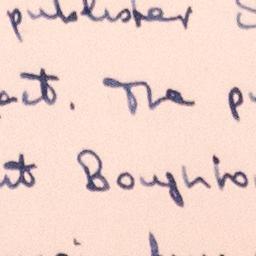 publisher
act. The p
ut Boughto